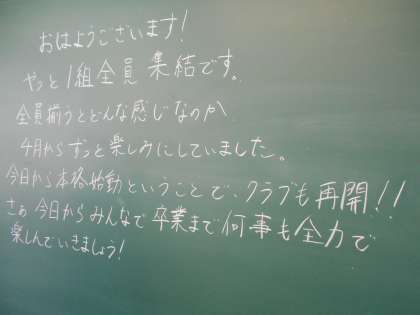 おはようございます！
やっと1組全員 集結です。
全員揃うとどんな感じなのか
4月からずっと楽しみにしていました。
今日から本格始動ということで、クラブも再開！！
さぁ 今日からみんなで 卒業まで 何事も全力で
楽しんでいきましょう！